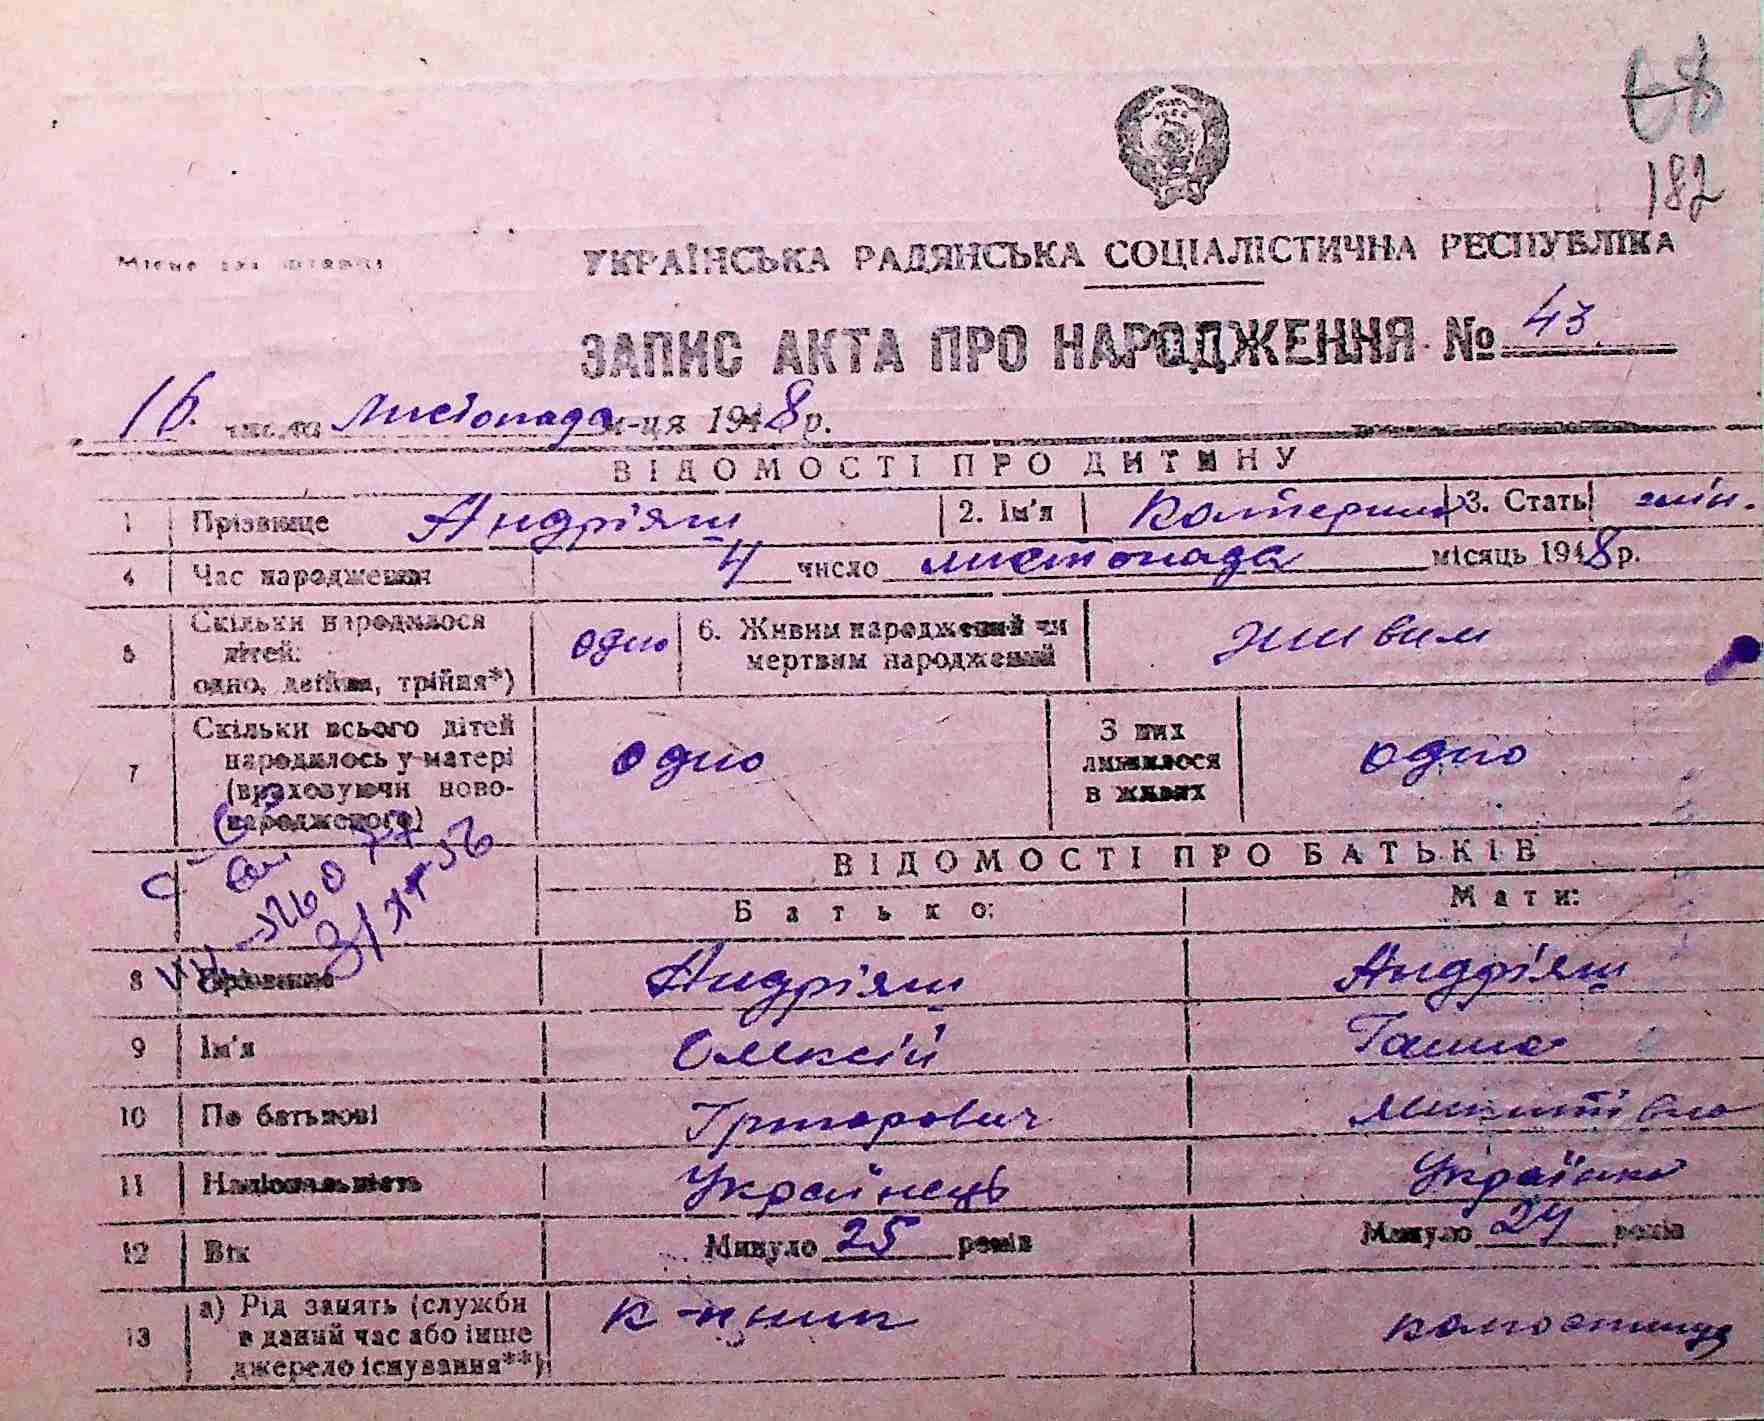 68
182
Місце для штампа
УКРАЇНСЬКА РАДЯНСЬКА СОЦІАЛІСТИЧНА РЕСПУБЛІКА
ЗАПИС АКТА ПРО НАРОДЖЕННЯ № 43
16. числа Листопада м-ця 1948 р.
ВІДОМОСТІ ПРО ДИТИНУ
1 Прізвище Андріяш 2. Ім'я Катерина 3. Стать жін.
4 Час народження 4 число листопада місяць 1948 р.
5 Скільки народилося дітей: одно, двійня, трійня*) одно 6. Живим народжений чи мертвим народжений живим
7 Скільки всього дітей народилось у матері (враховуючи новонародженого) одно З них лишилося в живих одно
ВІДОМОСТІ ПРО БАТЬКІВ
Батько: Мати:
8 Прізвище Андріяш Андріяш
9 Ім'я Олексій Ганна
10 По батькові Григорович Микитівна
11 Національність Українець Українка
12 Вік Минуло 25 років Минуло 24 років
13 а) Рід занять (служби в даний час або інше джерело існування**) к-пник колгоспниця